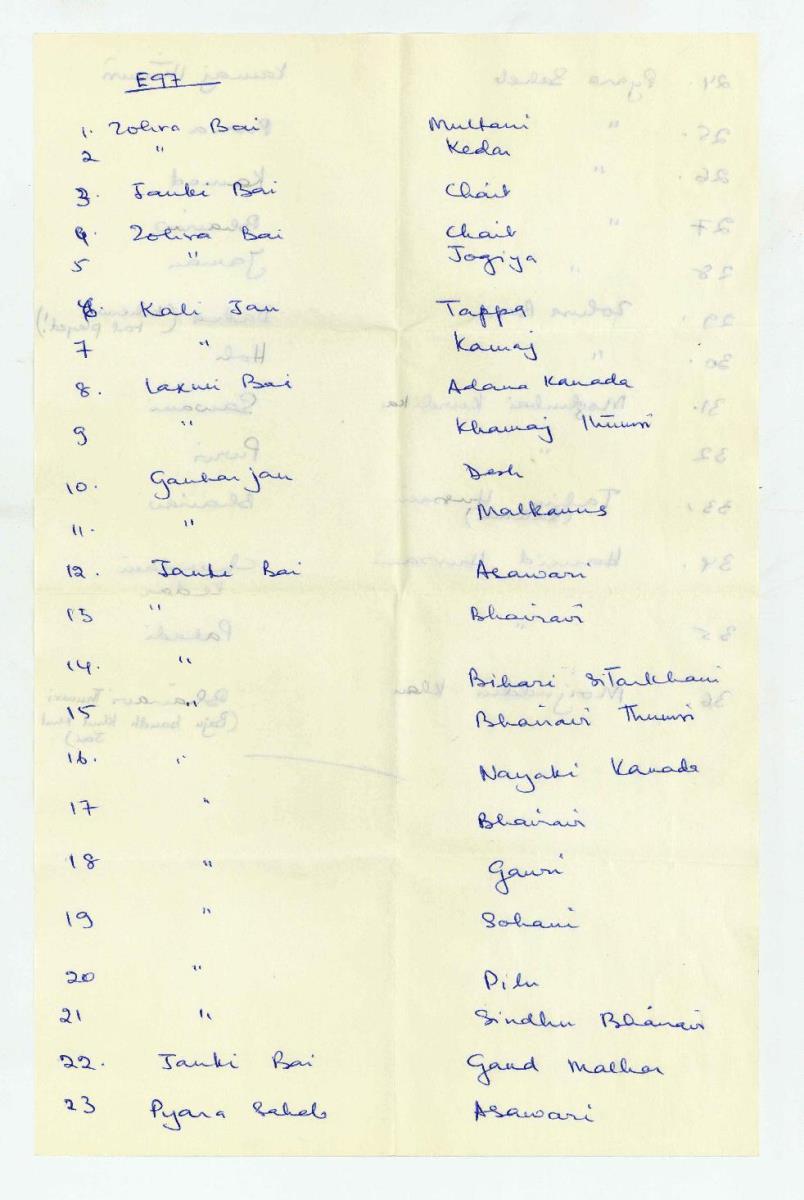 E97
1. Zohra Bai Multani
2 " Kedar
3. Janki Bai Chait
4. Zohra Bai Chait
5 " Jogiya
6. Kali Jan Tappa
7 " Kamaj
8. Laxmi Bai Adana Kanada
9 " Khamaj Thumri
10. Gauhar jan Desh
11. " Malkauns
12. Janki Bai Asawari
13 " Bhairavi
14. " Bihari Sitarkhani
15 " Bhairavi Thumri
16. " Nayaki Kanada
17 " Bhairavi
18 " Gauri
19 " Sohani
20 " Pilu
21 " Sindhu Bhairavi
22. Janki Bai Gaud Malhar
23 Pyara Saheb Asawari